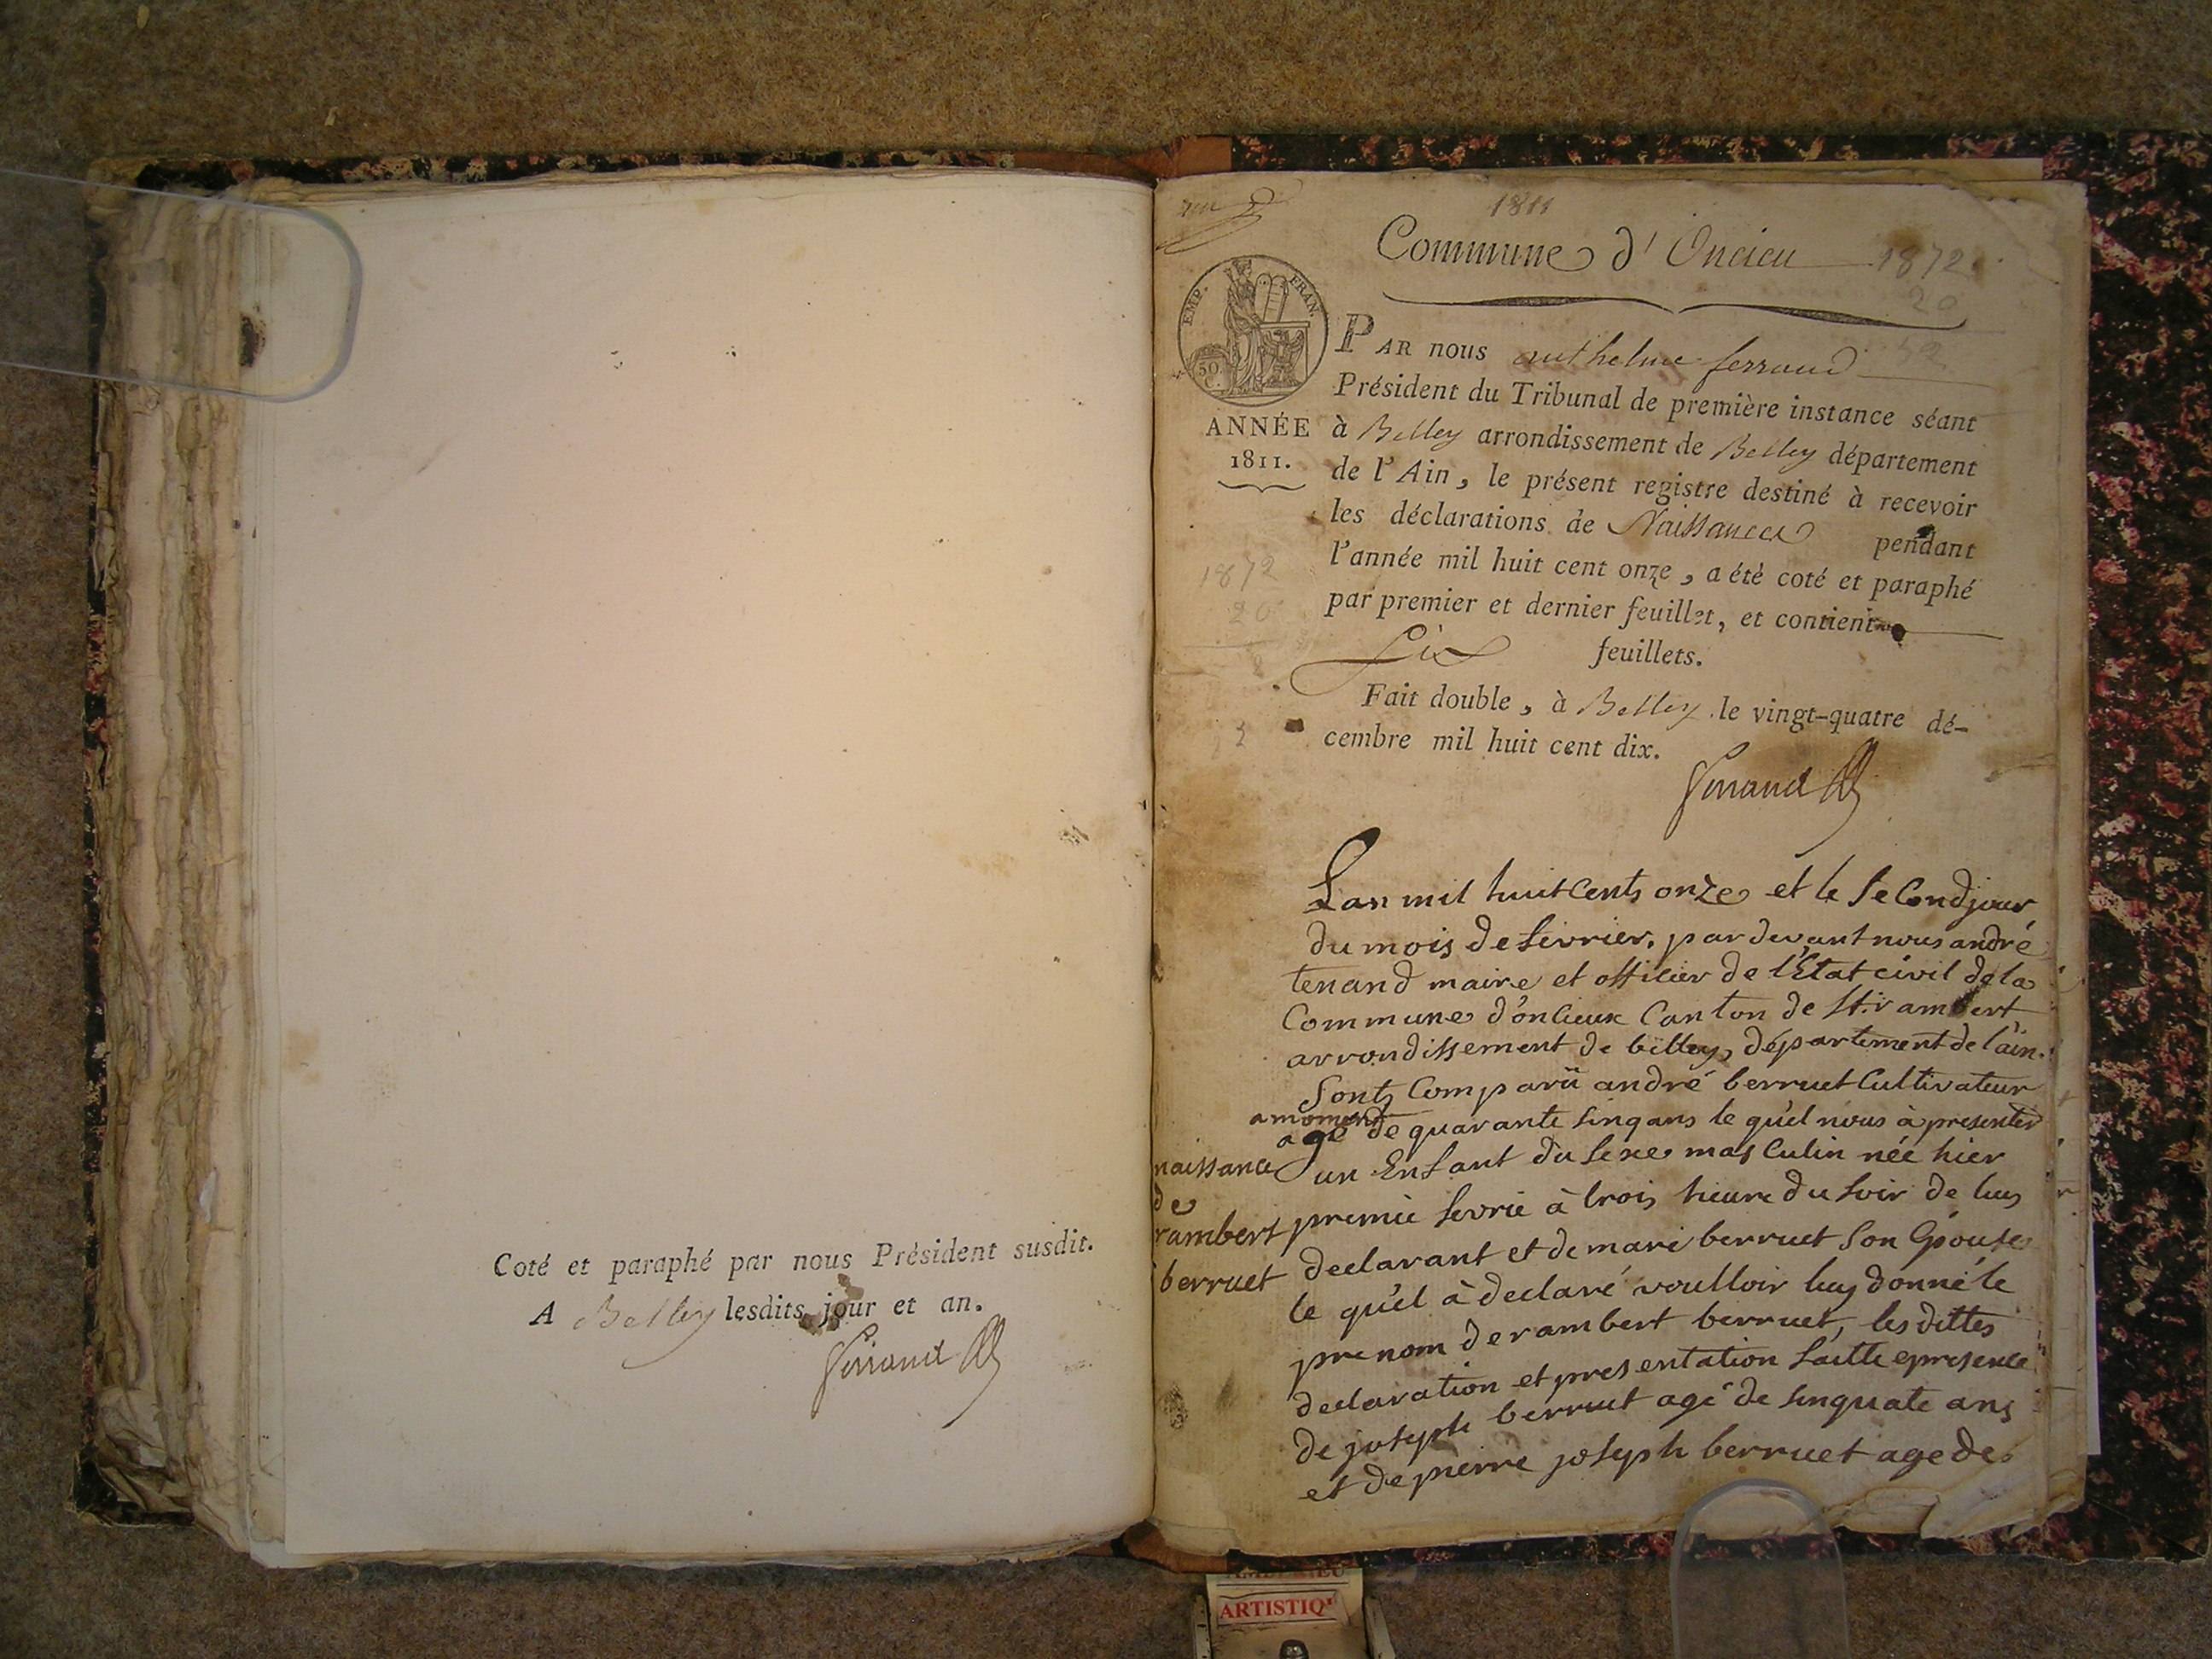 Coté et paraphé par nous Président susdit.
A Belley lesdits jour et an.
Ferrand
1811
Commune d'Oncieu
1872
20
EMP. FRAN.
50 C.
ANNÉE
1811.
PAR nous anthelme ferrand
Président du Tribunal de première instance séant
à Belley arrondissement de Belley département
de l'Ain, le présent registre destiné à recevoir
les déclarations de Naissances pendant
l'année mil huit cent onze, a été coté et paraphé
par premier et dernier feuillet, et contient
Six feuillets.
Fait double, à Belley le vingt-quatre dé-
cembre mil huit cent dix.
Ferrand
1872
20
Lan mil huit Cents onze et le Second jour
du mois de fevrier, par devant nous andré
tenand maire et officier de l'Etat civil de la
Commune d'oncieux Canton de St. rambert
arrondissement de belley, département de l'ain.
Sont Comparü andré berruet Cultivateur
amoment
agé de quarante sinq ans le qu'el nous à presenter
un Enfant du sexe masculin née hier
premie fevrie à trois heure du soir de luy
declarant et de marie berruet son Epouse
le qu'el à declaré voulloir luy donné le
prenom de rambert berruet, les dittes
declaration et presentation faitte epresence
de joseph berruet agé de sinquate ans
et de pierre joseph berruet age de
naissance
de
rambert
berruet
ARTISTIQ